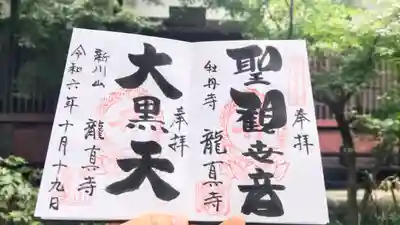 奉拝
聖観世音
牡丹寺
龍真寺
奉拝
大黒天
新川山
龍真寺
令和六年十月十九日